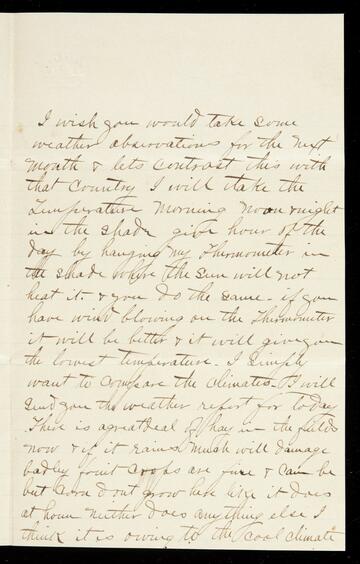 I wish you would take some
weather observations for the next
month & lets contrast this with
that country I will take the
Temperature Morning Noon & night
in the shade give hour of the
day by hanging my Thermometer in
the shade where the sun will not
heat it. & you do the same - if you
have wind blowing on the Thermometer
it will be better & it will give you
the lowest temperature. I simply
want to compare the climates. I will
send you the weather report for today
There is a great deal of hay in the fields
now & if it rains much will damage
badly fruit crops are fine & can be
but corn dont grow here like it does
at home neither does anything else I
think it is owing to the cool climate